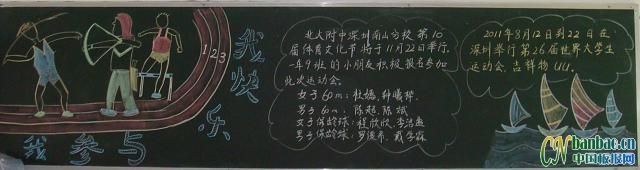 我参与
我快乐
1 2 3
北大附中深圳南山分校第10
届体育文化节将于11月22日举行,
一年9班的小朋友积极报名参加
此次运动会。
女子60m:杜嫣,钟曦
男子60m:陈
女子保龄球:程欣欣,李浩
男子保龄球:罗俊希,戴学霖
2011年8月12日到22日在
深圳举行第26届世界大学生
运动会,吉祥物UU。
CNbanbao.cn
中国板报网